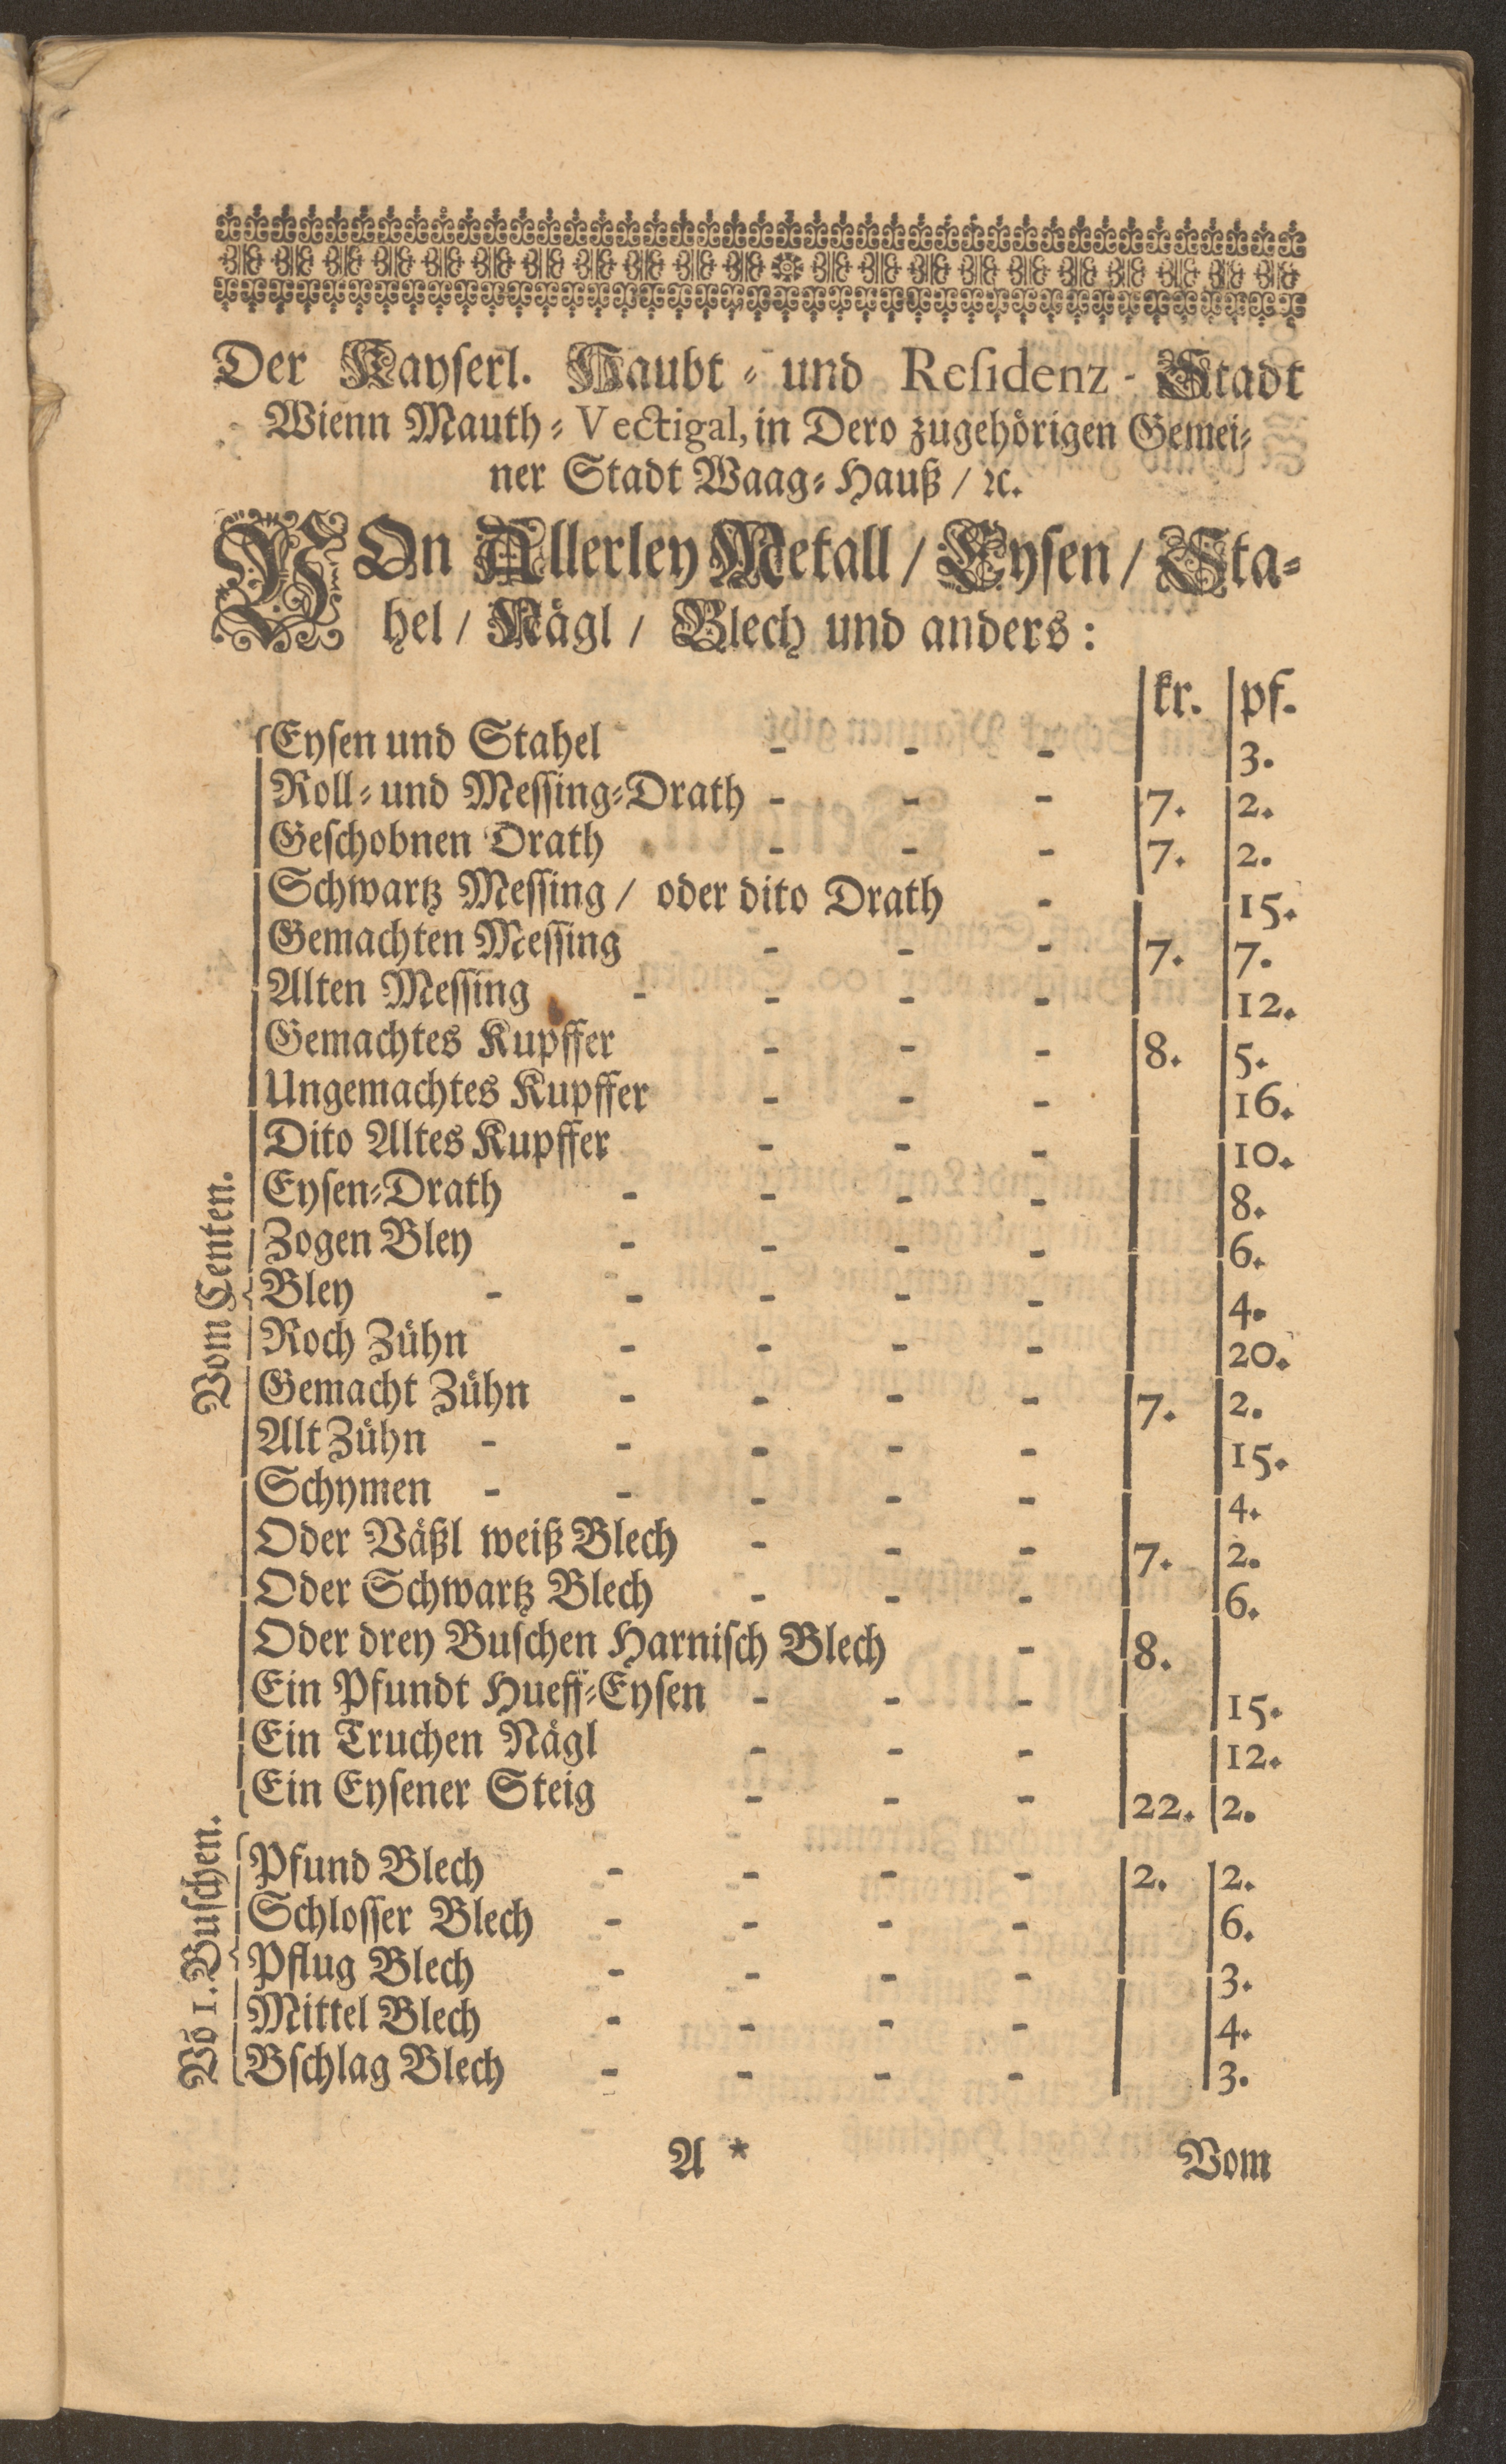 Der Kayserl. Haubt- und Residenz-Stadt
Wienn Mauth-Vectigal, in Dero zugehörigen Gemei-
ner Stadt Waag-Hauß / ꝛc.
VOn Allerley Metall / Eysen / Sta-
hel / Nägl / Blech und anders:
kr. pf.
Vom Centen.
Eysen und Stahel - - - 3.
Roll- und Messing-Drath - - - 7. 2.
Geschobnen Drath - - - 7. 2.
Schwartz Messing / oder dito Drath - 15.
Gemachten Messing - - - 7. 7.
Alten Messing - - - - 12.
Gemachtes Kupffer - - - 8. 5.
Ungemachtes Kupffer - - - 16.
Dito Altes Kupffer - - - 10.
Eysen-Drath - - - - 8.
Zogen Bley - - - - 6.
Bley - - - - - 4.
Roch Zühn - - - - 20.
Gemacht Zühn - - - - 7. 2.
Alt Zühn - - - - - 15.
Schymen - - - - - 4.
Oder Väßl weiß Blech - - - 7. 2.
Oder Schwartz Blech - - - 6.
Oder drey Buschen Harnisch Blech - 8.
Ein Pfundt Hueff-Eysen - - - 15.
Ein Truchen Nägl - - - 12.
Ein Eysener Steig - - - 22. 2.
Vō 1. Buschen.
Pfund Blech - - - - 2. 2.
Schlosser Blech - - - - 6.
Pflug Blech - - - - 3.
Mittel Blech - - - - 4.
Bschlag Blech - - - - 3.
A * Vom